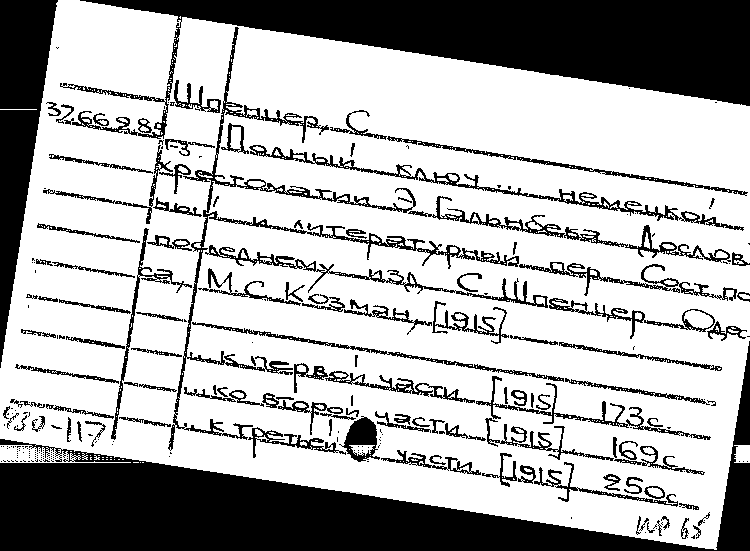 Шпенцер, С
3266985
Г-3. Полный ключ ... немецкой
хрестоматии Э Гальнбека Дослов
ный и литературный пер Сост.по
последнему изд С. Шпенцер Одес
са, М.С. Козман, [1915]
... к первой части [1915] 173с.
... ко второй части. [1915] 169с
... к третьей части. [1915] 250с
930-117
ИР 65